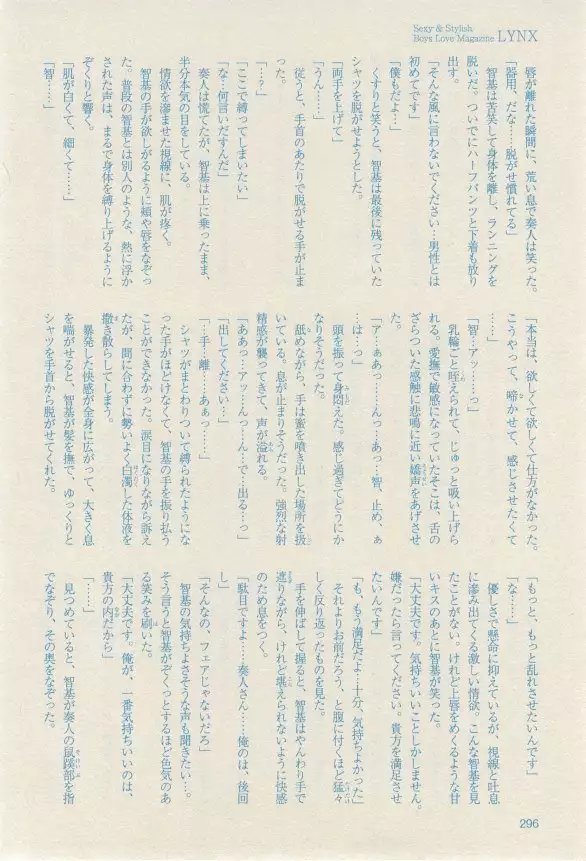 Sexy & Stylish
Boys Love Magazine LYNX
唇が離れた瞬間に、荒い息で奏人は笑った。
「器用、だな……脱がせ慣れてる」
智基は苦笑して身体を離し、ランニングを
脱いだ。ついでにハーフパンツと下着も放り
出す。
「そんな風に言わないでください…男性とは
初めてです」
「僕もだよ…」
くすりと笑うと、智基は最後に残っていた
シャツを脱がせようとした。
「両手を上げて」
「うん……」
従うと、手首のあたりで脱がせる手が止ま
った。
「…?」
「ここで縛ってしまいたい」
「な…何言いだすんだ」
奏人は慌てたが、智基は上に乗ったまま、
半分本気の目をしている。
情欲を滲ませた視線に、肌が疼く。
智基の手が欲しがるように頬や唇をなぞっ
た。普段の智基とは別人のような、熱に浮か
された声は、まるで身体を縛り上げるように
ぞくりと響く。
「肌が白くて、細くて……」
「智……」
「本当は、欲しくて欲しくて仕方がなかった。
こうやって、啼かせて、感じさせたくて
……」
「智…アッ……っ」
乳輪ごと咥えられて、じゅっと吸い上げら
れる。愛撫で敏感になっていたそこは、舌の
ざらついた感触に悲鳴に近い嬌声をあげさせ
た。
「ア…ぁあっ……んっ…あっ…智、止め、ぁ
…はっ…」
頭を振って身悶えた。感じ過ぎてどうにか
なりそうだった。
舐めながら、手は蜜を噴き出した場所を扱
いている。息が止まりそうだった。強烈な射
精感が襲ってきて、声が溢れる。
「ああっ…アッ…んっ…ん…で…出る…っ」
「出してください…」
「…手…離…あぁっ……」
シャツがまとわりついて縛られたようにな
った手がほどけなくて、智基の手を振り払う
ことができなかった。涙目になりながら訴え
たが、間に合わずに勢いよく白濁した体液を
撒き散らしてしまう。
暴発した快感が全身に広がって、大きく息
を喘がせると、智基が髪を撫で、ゆっくりと
シャツを手首から脱がせてくれた。
「もっと、もっと乱れさせたいんです」
「な……」
優しさで懸命に抑えているが、視線と吐息
に滲み出てくる激しい情欲。こんな智基を見
たことがない。けれど上唇をめくるような甘
いキスのあとに智基が笑った。
「大丈夫です。気持ちいいことしかしません。
嫌だったら言ってください。貴方を満足させ
たいんです」
「も、もう満足だよ…十分、気持ちよかった」
それよりお前だろう、と腹に付くほど猛々
しく反り返ったものを見た。
手を伸ばして握ると、智基はやんわり手で
遮りながら、けれど堪えられないように快感
のため息をつく。
「駄目ですよ……奏人さん……俺のは、後回
し」
「そんなの、フェアじゃないだろ」
智基の気持ちよさそうな声も聞きたい…。
そう言うと智基がぞくっとするほど色気のあ
る笑みを刷いた。
「大丈夫です。俺が、一番気持ちいいのは、
貴方の内だから」
「……」
見つめていると、智基が奏人の鼠蹊部を指
でなぞり、その奥をなぞった。
296